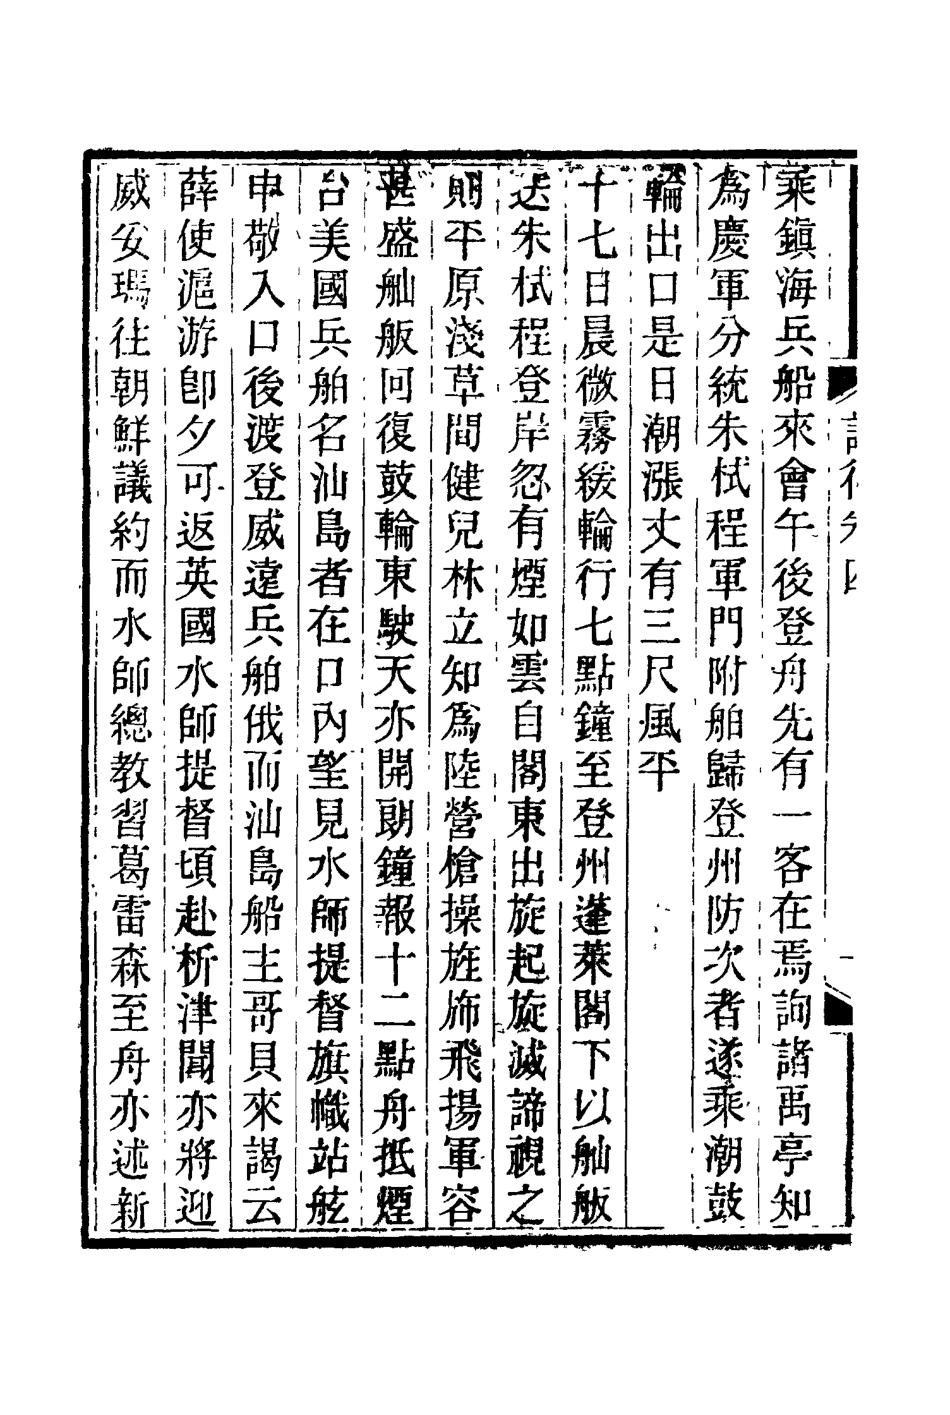 乘鎮海兵船來會午後登舟先有一客在焉詢諸禹亭知
爲慶軍分統朱栻程軍門附舶歸登州防次者遂乘潮鼓
輪出口是日潮漲丈有三尺風平
十七日晨微霧緩輪行七點鐘至登州蓬萊閣下以舢舨
送朱栻程登岸忽有煙如雲自閣東出旋起旋滅諦視之
則平原淺草間健兒林立知爲陸營槍操旌斾飛揚軍容
甚盛舢舨回復鼓輪東駛天亦開朗鐘報十二點舟抵煙
台美國兵舶名汕島者在口內望見水師提督旗幟站舷
申敬入口後渡登威遠兵舶俄而汕島船主哥貝來謁云
薛使滬游卽夕可返英國水師提督頃赴析津聞亦將迎
威妥瑪往朝鮮議約而水師總教習葛雷森至舟亦述新